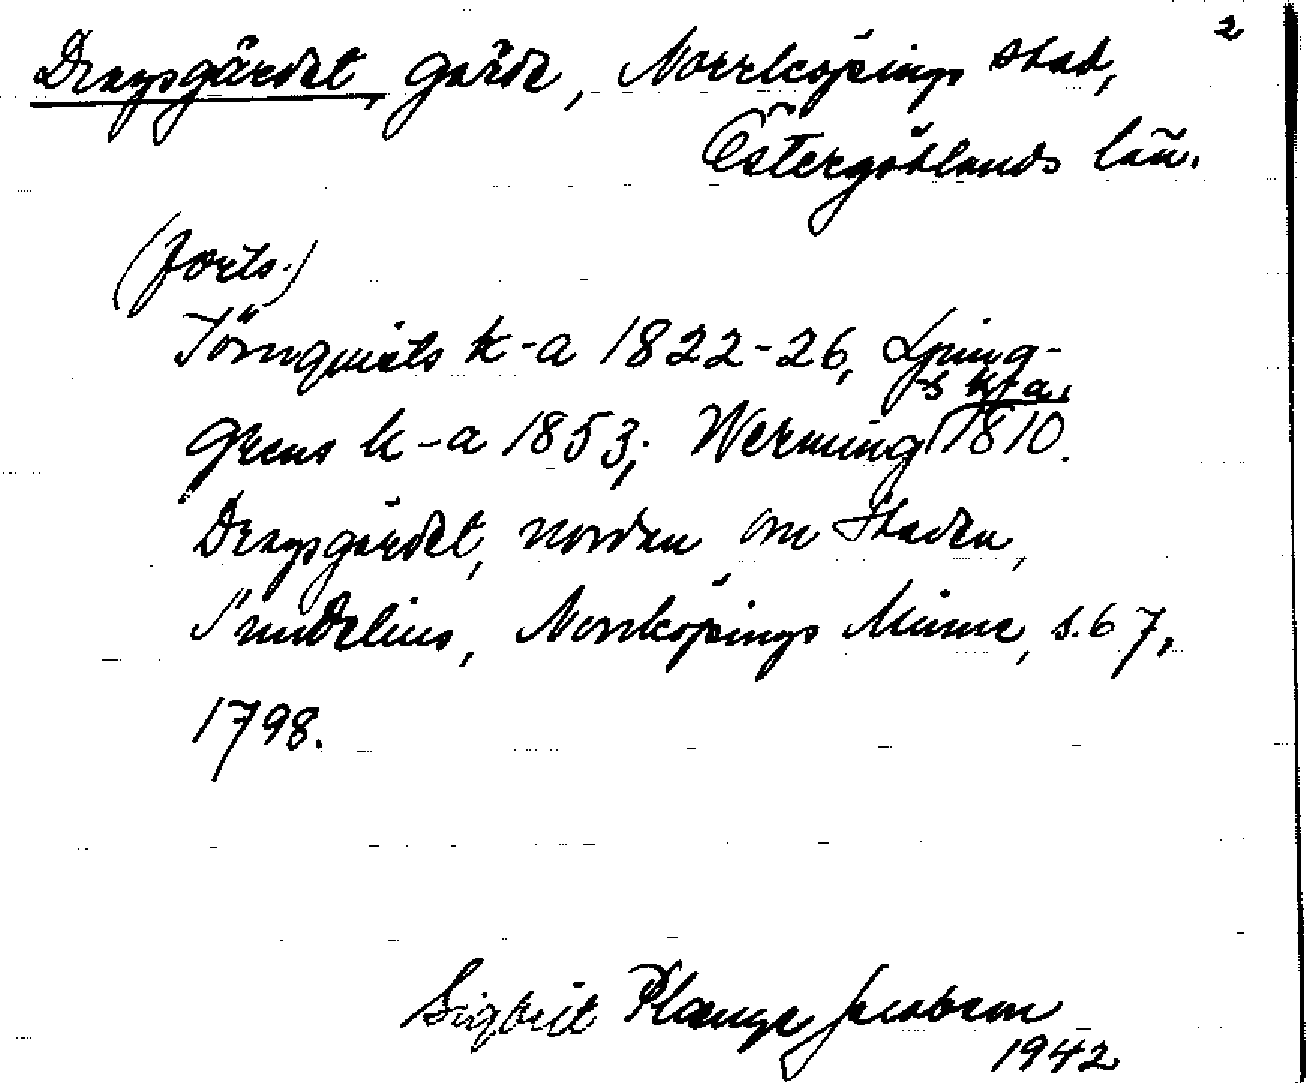 2
Dragsgärdet, gärde, Norrköpings stad,
Östergötlands län.
(forts.)
Törnqvists k-a 1822-26, Ljung-
grens k-a 1853; Werming s k-a. 1810.
Dragsgärdet, norden om Staden,
Sundelius, Norrköpings Minne, s. 67,
1798.
Sigbrit Plænge Jacobson
1942